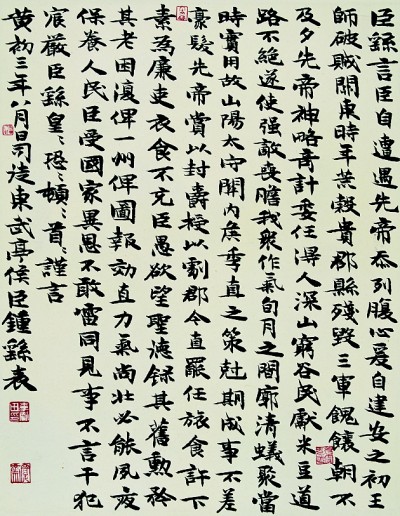 臣繇言臣自遭遇先帝忝列腹心爰自建安之初王
師破賊關東時年荒穀貴郡縣殘毀三軍餽饟朝不
及夕先帝神略奇計委任得人深山窮谷民獻米豆道
路不絕遂使強敵喪膽我衆作氣旬月之間廓清蟻聚當
時實用故山陽太守關內侯季直之策尅期成事不差
豪髮先帝賞以封爵授以劇郡今直罷任旅食許下
素為廉吏衣食不充臣愚欲望聖德錄其舊勳矜
其老困復俾一州俾圖報効直力氣尚壯必能夙夜
保養人民臣受國家異恩不敢雷同見事不言干犯
宸嚴臣繇皇々恐々頓々首々謹言
黄初三年八月日司徒東武亭侯臣鍾繇表